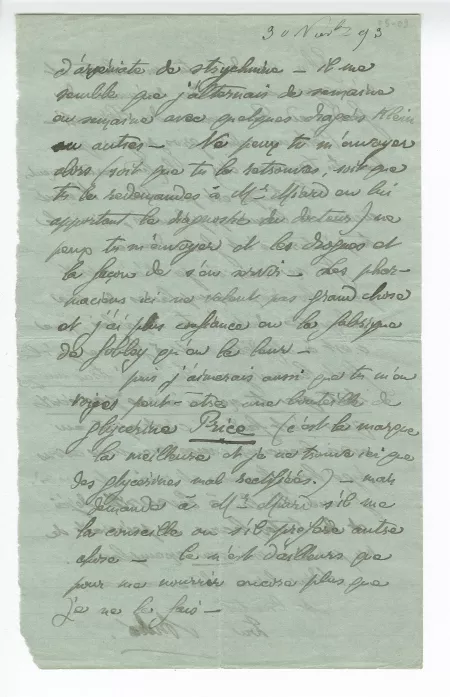 30 Nov. 93
93-03
d'arséniate de strychnine — il me
semble que j'alternais de semaine
en semaine avec quelques dragées Klein
ou autres — Ne peux tu m'envoyer
alors (soit que tu la retrouves, soit que
tu la redemandes à Mr en lui
apportant le diagnostic du docteur) ne
peux tu m'envoyer et les drogues et
la façon de s'en servir — Les phar-
maciens ici ne valent pas grand chose
et j'ai plus confiance en la fabrique
de qu'en la leur —
puis j'aimerais aussi que tu m'en
peut-être une bouteille de
glycerine Price (c'est la marque
la meilleure et je ne trouve ici que
des glycerines mal rectifiées.) — mais
demande à Mr s'il me
la conseille ou s'il préfère autre
chose — Ce n'est d'ailleurs que
pour me nourrir encore plus que
je ne le fais —